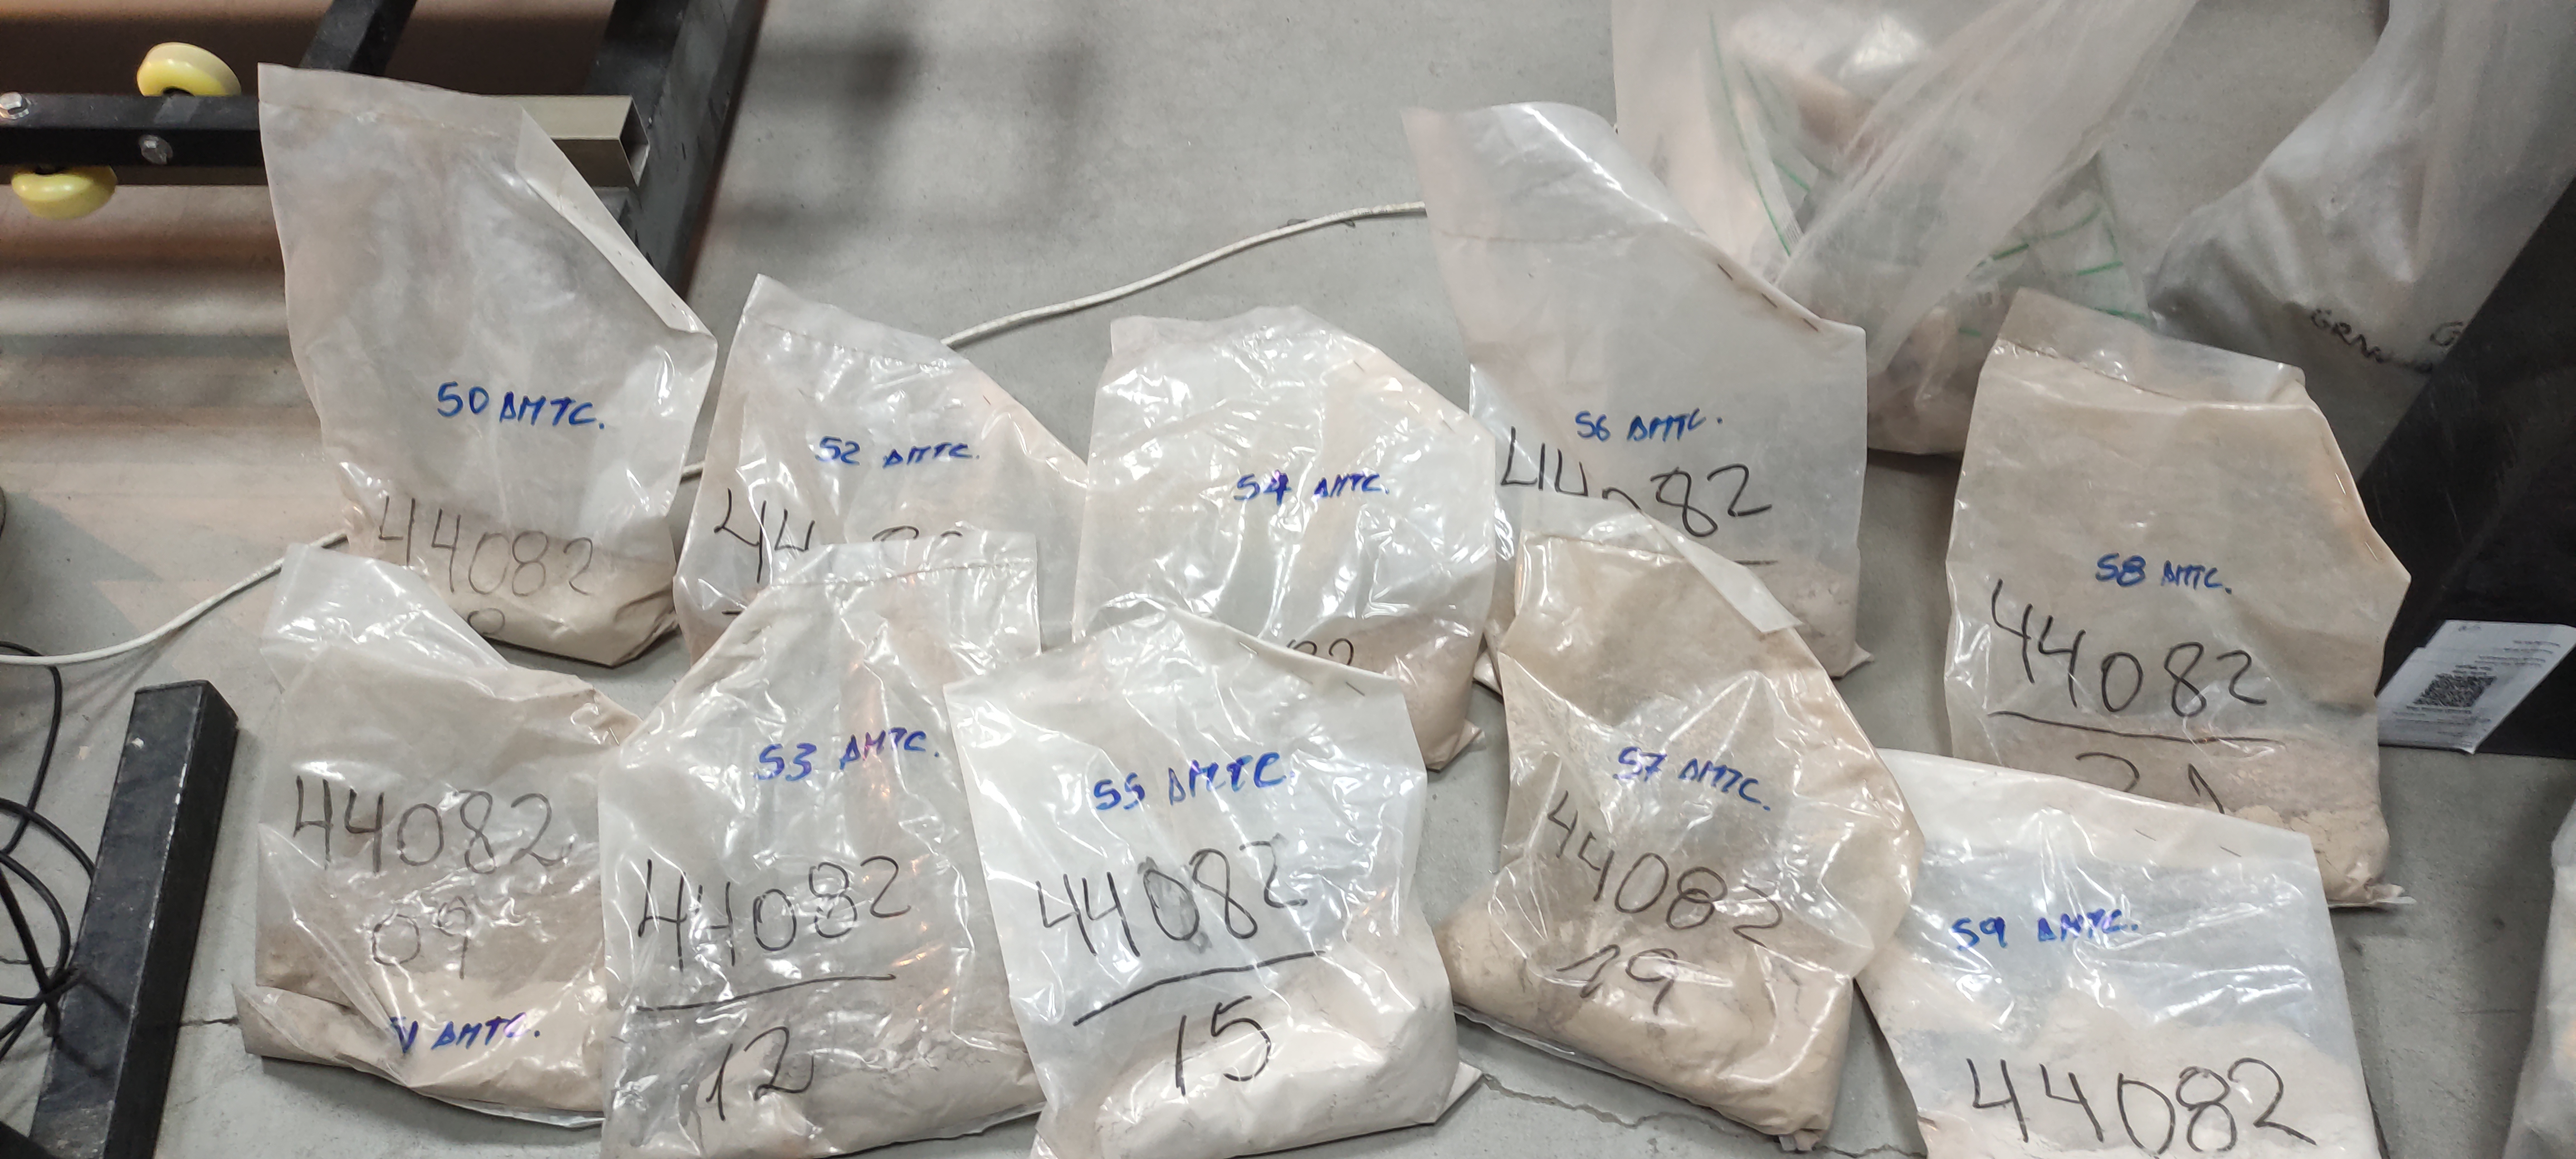 50 AMTC.
44082
52 AMTC.
44
54 AMTC.
56 AMTC.
44082
58 AMTC.
44082
21
44082
09
AMTC.
53 AMTC.
44082
12
55 AMTC.
44082
15
57 AMTC.
44082
19
59 AMTC.
44082